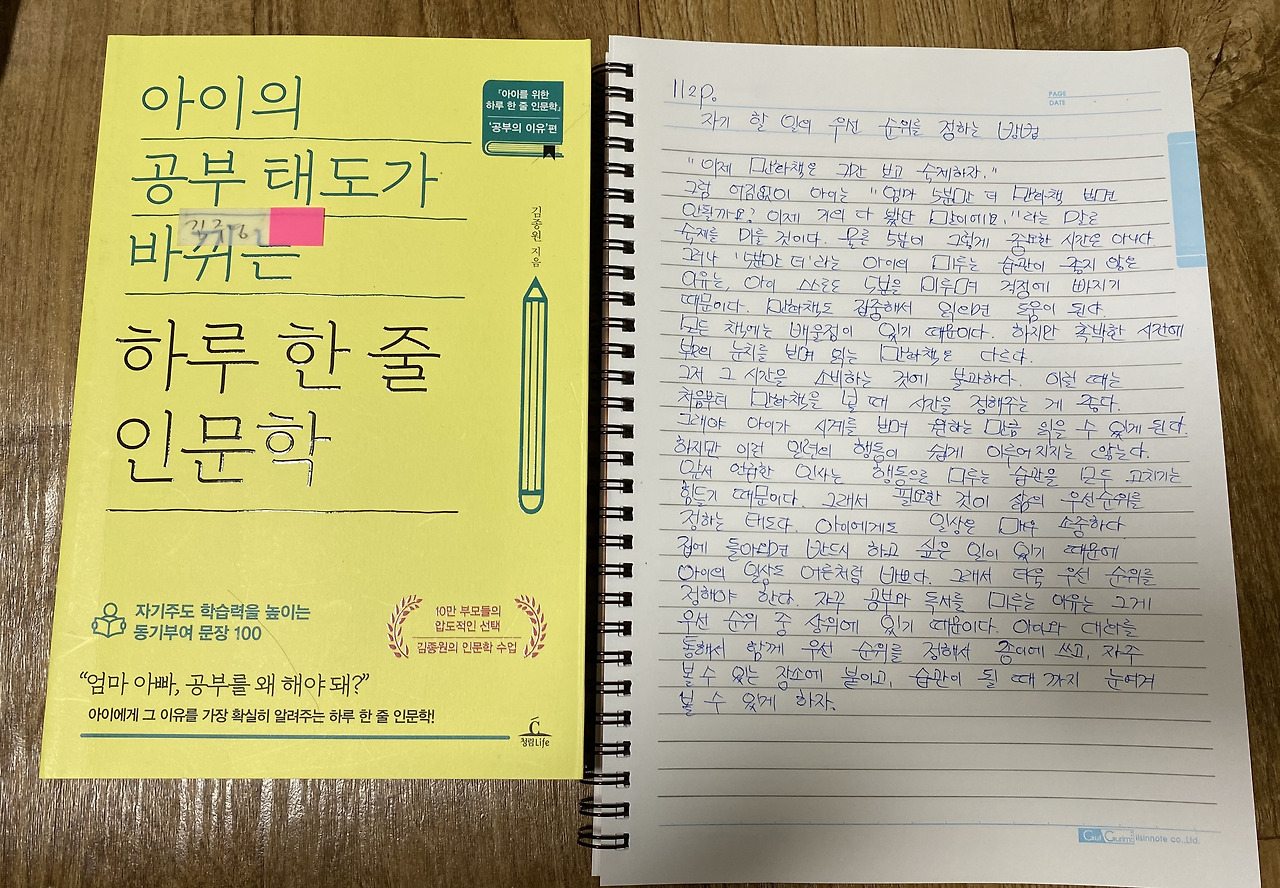 아이의
공부 태도가
바뀌는
하루 한 줄
인문학
「아이를 위한
하루 한 줄 인문학」
'공부의 이유'편
김종원 지음
자기주도 학습력을 높이는
동기부여 문장 100
10만 부모들의
압도적인 선택
김종원의 인문학 수업
"엄마 아빠, 공부를 왜 해야 돼?"
아이에게 그 이유를 가장 확실히 알려주는 하루 한 줄 인문학!
청림Life
PAGE
DATE
112p.
자기 할 일의 우선 순위를 정하는 방법
"이제 만화책은 그만 보고 숙제하자."
그럼 어김없이 아이는 "엄마 5분만 더 만화책 보면
안될까요? 이제 거의 다 봤단 말이에요."라는 말로
숙제를 미룰 것이다. 물론 5분이 그렇게 중요한 시간은 아니다
그러나 '5분만 더'라는 아이의 미루는 습관이 좋지 않은
이유는, 아이 스스로 5분을 미루며 걱정에 빠지기
때문이다. 만화책도 집중해서 읽으면 도움이 된다.
모든 책에는 배울점이 있기 때문이다. 하지만 촉박한 시간에
부모의 눈치를 보며 읽는 만화책은 다르다.
그저 그 시간을 소비하는 것에 불과하다. 이럴 때는
처음부터 만화책을 볼 때 시간을 정해주는 게 좋다.
그래야 아이가 시계를 보며 원하는 만큼 읽을 수 있게 된다.
하지만 이런 일련의 행동이 쉽게 이루어지지는 않는다.
앞서 언급한 인사는 행동으로 미루는 습관을 모두 고치기는
힘들기 때문이다. 그래서 필요한 것이 삶의 우선순위를
정하는 태도다. 아이에게도 일상은 매우 소중하다
집에 돌아오면 반드시 하고 싶은 일이 있기 때문에
아이의 일상도 어른처럼 바쁘다. 그래서 더욱 우선 순위를
정해야 한다. 자꾸 공부와 독서를 미루는 이유는 그게
우선 순위 중 상위에 있기 때문이다. 아이와 대화를
통해서 함께 우선 순위를 정해서 종이에 쓰고, 자주
볼 수 있는 장소에 붙이고, 습관이 될 때 까지 눈여겨
볼 수 있게 하자.
ilsinnote co.,Ltd.